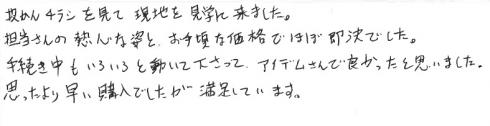 投かんチラシを見て現地を見学に来ました。
担当さんの熱心な姿と、お手頃な価格でほぼ即決でした。
手続き中もいろいろと動いて下さって、アイデムさんで良かったと思いました。
思ったより早い購入でしたが満足しています。